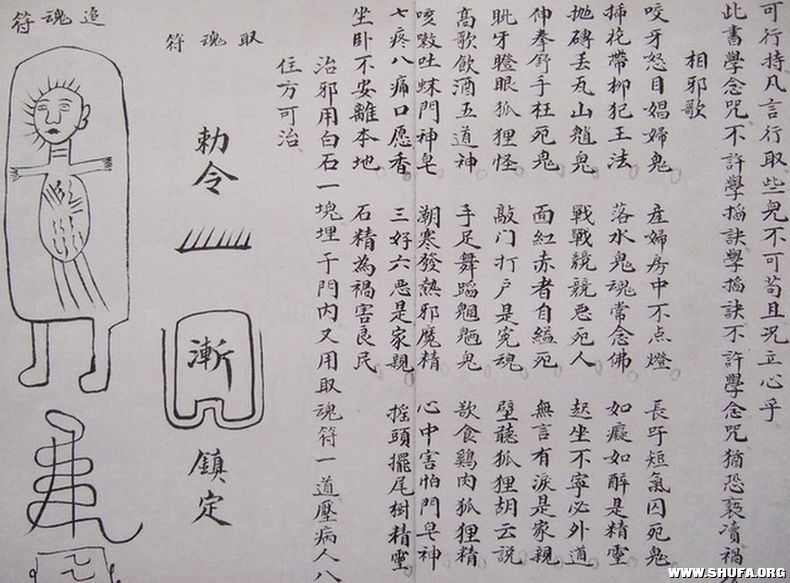 可行持凡言行取些兒不可苟且况立心乎
此書學念咒不許學搯訣學搯訣不許學念咒猶恐褻凟禍
相邪歌
咬牙怒目娼婦鬼 產婦房中不点燈 長吁短氣囚死鬼
揷花帶柳犯王法 落水鬼魂常念佛 如癡如醉是精靈
抛磚丟瓦山魈鬼 戰戰兢兢惡死人 起坐不寧必外道
伸拳舒手枉死鬼 面紅赤者自縊死 無言有淚是家親
眦牙瞪眼狐狸怪 敲门打户是冤魂 壁聽狐狸胡云説
髙歌飲酒五道神 手足舞蹈魍魎鬼 飲食鷄肉狐狸精
咳嗽吐蛛門神皂 潮寒發熱邪魔精 心中害怕門皂神
七疼八痛口愿香 三好六惡是家親 摇頭擺尾樹精靈
坐卧不安離本地 石精為禍害良民
治邪用白石一塊埋于門内又用取魂符一道壓病人八
住方可治
取魂符
勅令
漸
鎮定
追魂符
WWW.SHUFA.ORG